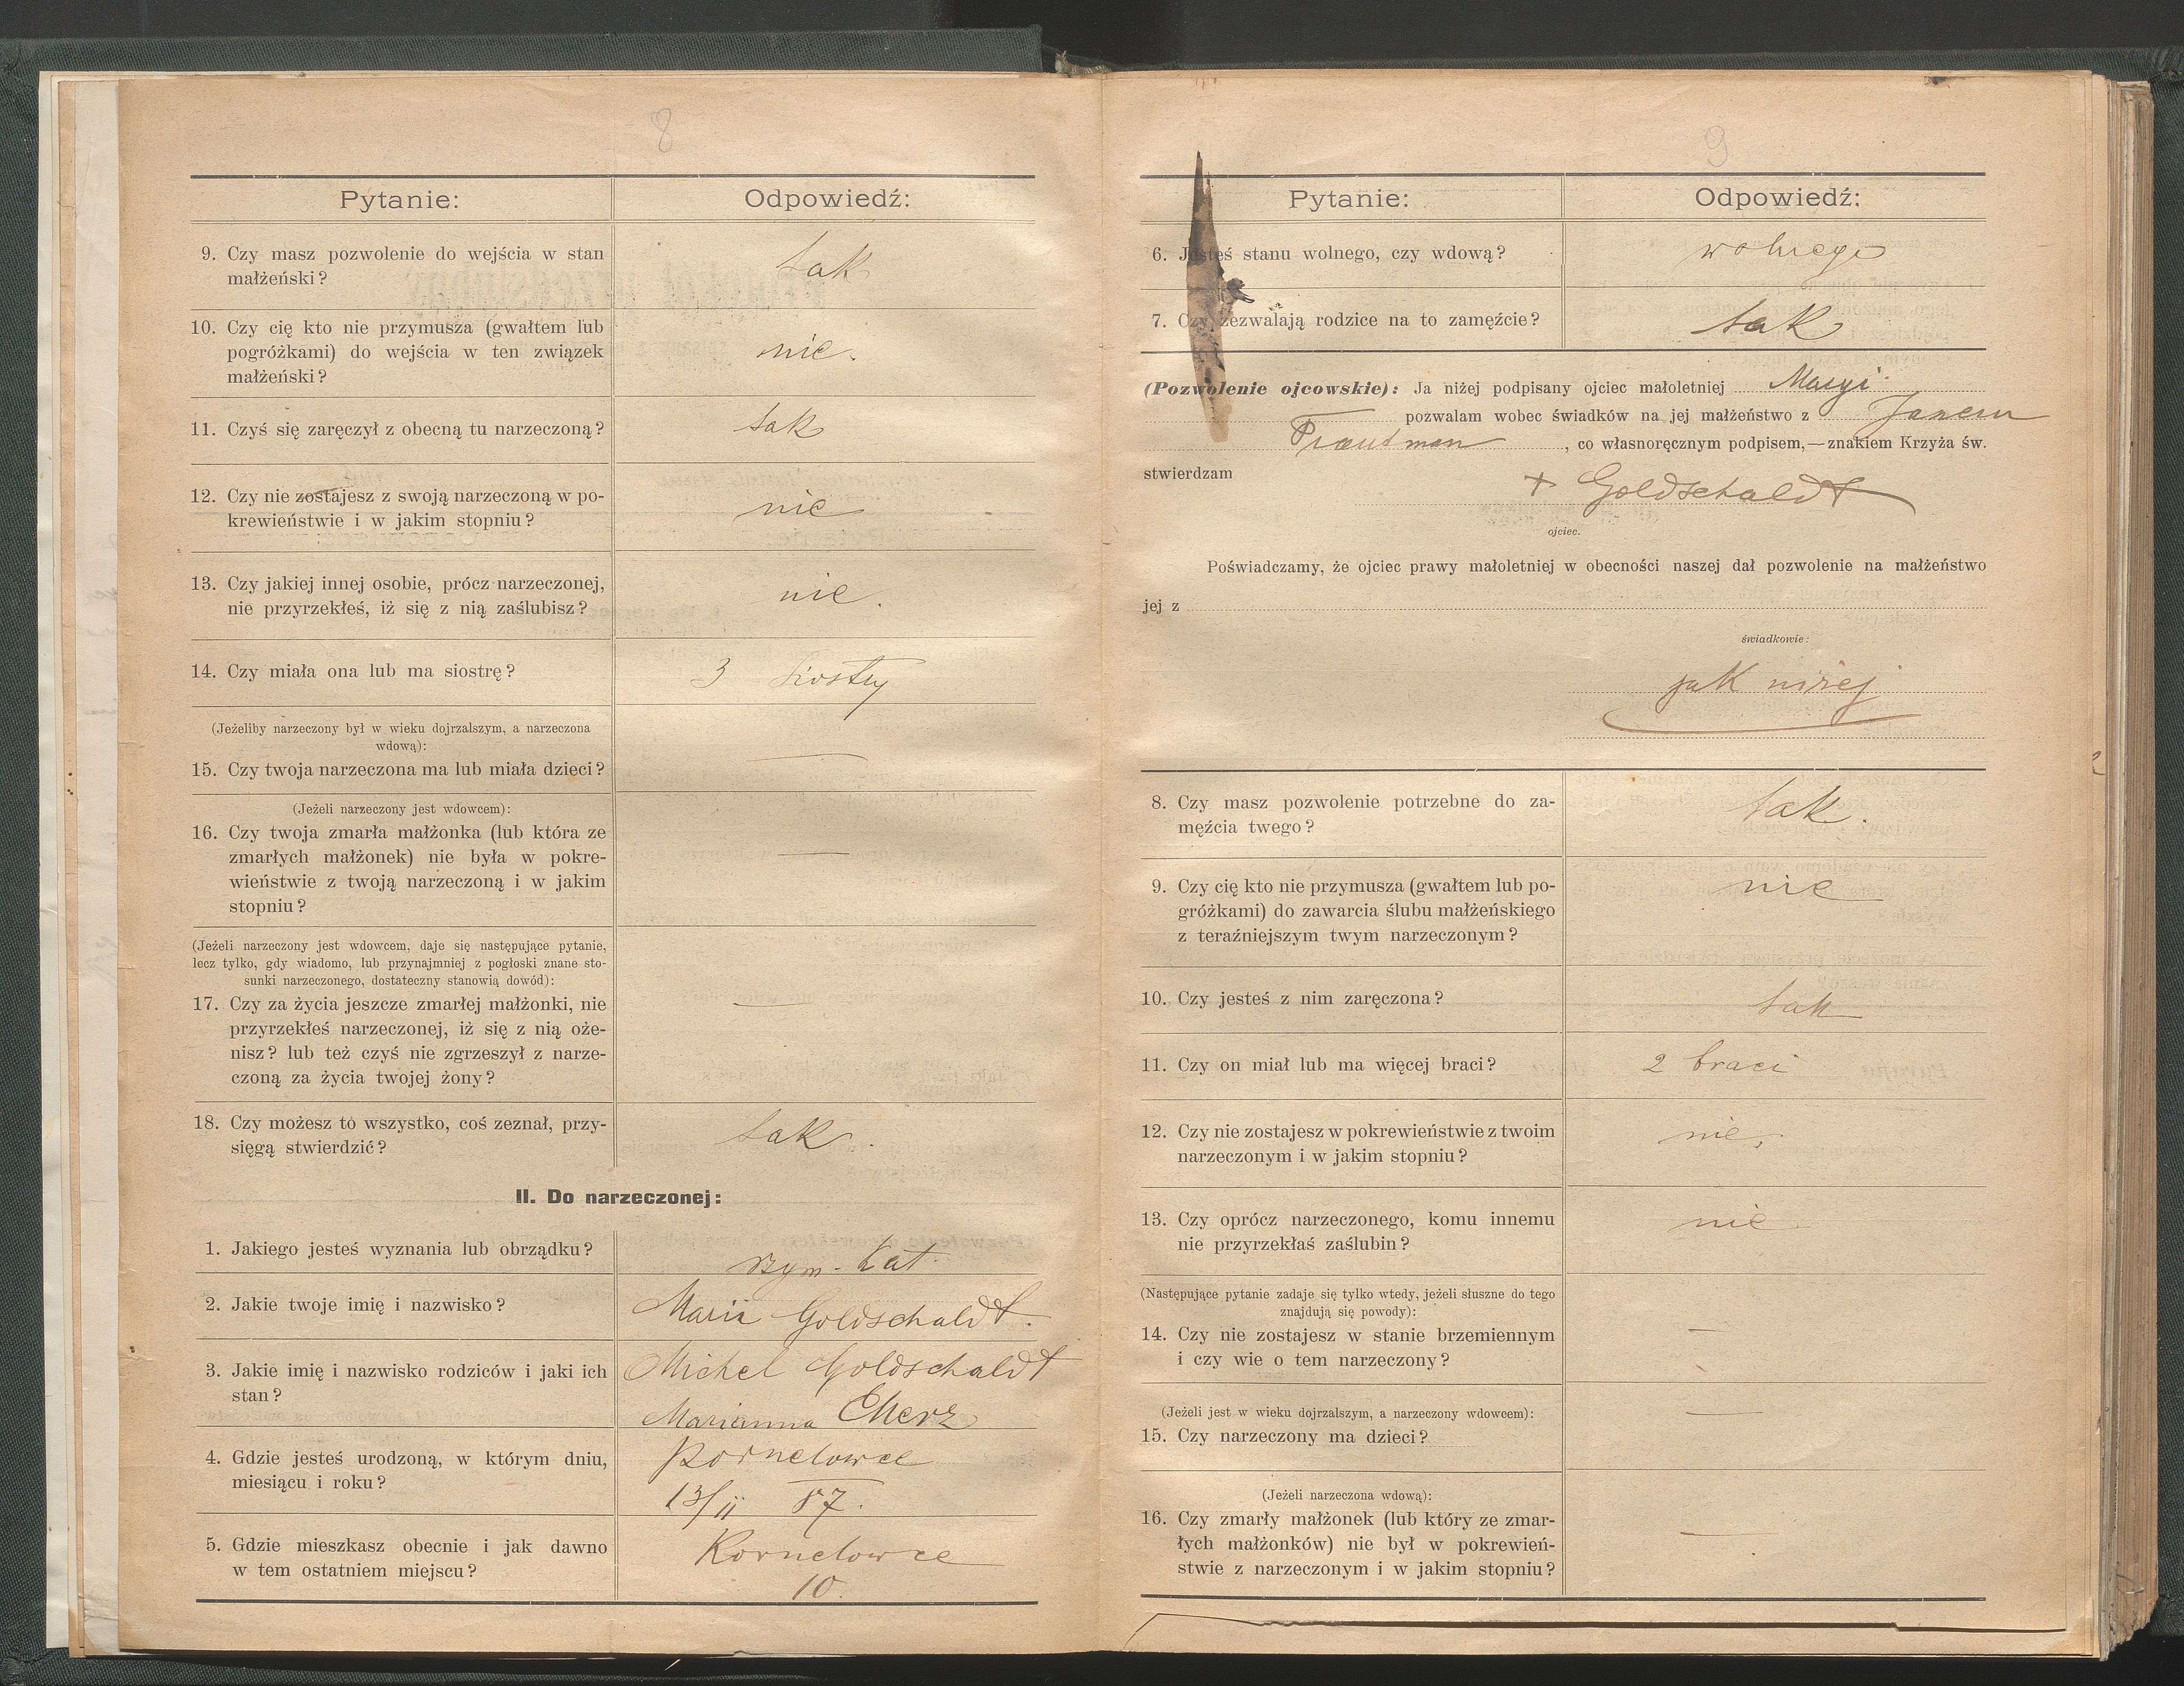 8
Pytanie:
Odpowiedź:
9. Czy masz pozwolenie do wejścia w stan
małżeński?
tak
10. Czy cię kto nie przymusza (gwałtem lub
pogróżkami) do wejścia w ten związek
małżeński?
nie.
11. Czyś się zaręczył z obecną tu narzeczoną?
tak
12. Czy nie zostajesz z swoją narzeczoną w po-
krewieństwie i w jakim stopniu?
nie
13. Czy jakiej innej osobie, prócz narzeczonej,
nie przyrzekłeś, iż się z nią zaślubisz?
nie.
14. Czy miała ona lub ma siostrę?
3 siostry
(Jeżeliby narzeczony był w wieku dojrzalszym, a narzeczona
wdową):
15. Czy twoja narzeczona ma lub miała dzieci?
—
(Jeżeli narzeczony jest wdowcem):
16. Czy twoja zmarła małżonka (lub która ze
zmarłych małżonek) nie była w pokre-
wieństwie z twoją narzeczoną i w jakim
stopniu?
—
(Jeżeli narzeczony jest wdowcem, daje się następujące pytanie,
lecz tylko, gdy wiadomo, lub przynajmniej z pogłoski znane sto-
sunki narzeczonego, dostateczny stanowią dowód):
17. Czy za życia jeszcze zmarłej małżonki, nie
przyrzekłeś narzeczonej, iż się z nią oże-
nisz? lub też czyś nie zgrzeszył z narze-
czoną za życia twojej żony?
—
18. Czy możesz to wszystko, coś zeznał, przy-
sięgą stwierdzić?
tak.
II. Do narzeczonej:
1. Jakiego jesteś wyznania lub obrządku?
rzym-kat.
2. Jakie twoje imię i nazwisko?
Maria Goldschaldt.
3. Jakie imię i nazwisko rodziców i jaki ich
stan?
Michel Goldschaldt
Marianna
4. Gdzie jesteś urodzoną, w którym dniu,
miesiącu i roku?
Kornelowce
13/11 87.
5. Gdzie mieszkasz obecnie i jak dawno
w tem ostatniem miejscu?
Kornelowce
10.
9
Pytanie:
Odpowiedź:
6. Jesteś stanu wolnego, czy wdową?
wolnego
7. Czy zezwalają rodzice na to zamęźcie?
tak
(Pozwolenie ojcowskie): Ja niżej podpisany ojciec małoletniej Maryi
pozwalam wobec świadków na jej małżeństwo z Janem
Trautman, co własnoręcznym podpisem,—znakiem Krzyża św.
stwierdzam
+ Goldschaldt
ojciec.
Poświadczamy, że ojciec prawy małoletniej w obecności naszej dał pozwolenie na małżeństwo
jej z
świadkowie:
jak niżej
8. Czy masz pozwolenie potrzebne do za-
męźcia twego?
tak.
9. Czy cię kto nie przymusza (gwałtem lub po-
gróżkami) do zawarcia ślubu małżeńskiego
z teraźniejszym twym narzeczonym?
nie
10. Czy jesteś z nim zaręczona?
tak
11. Czy on miał lub ma więcej braci?
2 braci
12. Czy nie zostajesz w pokrewieństwie z twoim
narzeczonym i w jakim stopniu?
nie.
13. Czy oprócz narzeczonego, komu innemu
nie przyrzekłaś zaślubin?
nie
(Następujące pytanie zadaje się tylko wtedy, jeżeli słuszne do tego
znajdują się powody):
14. Czy nie zostajesz w stanie brzemiennym
i czy wie o tem narzeczony?
—
(Jeżeli jest w wieku dojrzalszym, a narzeczony wdowcem):
15. Czy narzeczony ma dzieci?
—
(Jeżeli narzeczona wdową):
16. Czy zmarły małżonek (lub który ze zmar-
łych małżonków) nie był w pokrewień-
stwie z narzeczonym i w jakim stopniu?
—